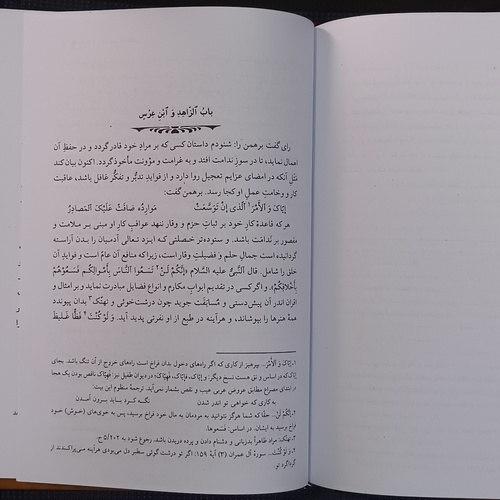 بابُ الزّاهِدِ وَ ابْنِ عِرْسٍ
رای گفت برهمن را: شنودم داستان کسی که بر مرادِ خود قادر گردد و در حفظِ آن
اهمال نماید، تا در سوزِ ندامت افتد و به غرامت و مؤونت مأخوذ گردد. اکنون بیان کند
مَثَلِ آنکه در امضای عزایم تعجیل روا دارد و از فوایدِ تدبّر و تفکّر غافل باشد، عاقبت
کار و وخامتِ عملِ او کجا رسد. برهمن گفت:
اِیّاکَ وَ الْأَمْرَ۱ الَّذی اِنْ تَوَسَّعَتْ مَوارِدُه ضاقَتْ عَلَیْکَ الْمَصادِرُ
هر که قاعدهٔ کارِ خود بر ثباتِ حزم و وقار ننهد عواقبِ کارِ او مبنی بر ملامت و
مقصور بر نَدامَت باشد. و ستوده‌تر خصلتی که ایزد تعالی آدمیان را بدان آراسته
گردانیده است جمالِ حلم و فضیلتِ وقار است، زیرا که منافع آن عامّ است و فوایدِ آن
خلق را شامل. قال النَّبیُّ علیه السَّلام «اِنَّکُمْ لَنْ۲ تَسَعُوا النّاسَ بِأَمْوالِکُم فَسَعُوهُمْ
بِأَخْلاقِکُمْ». و اگر کسی در تقدیمِ ابوابِ مکارم و انواعِ فضایل مبادرت نماید و بر امثال و
اقران اندر آن پیش‌دستی و مُسابَقَت جوید چون درشت‌خوئی و تهتّک۳ بدان پیوندد
همهٔ هنرها را بپوشاند، و هرآینه در طبع از او نفرتی پدید آید. وَ لَوْ کُنْتَ۴ فَظّاً غَلیظَ
۱. اِیّاکَ وَ الْأَمْرَ... بپرهیز از کاری که اگر راه‌های دخول بدان فراخ است راه‌های خروج از آن تنگ باشد. بجای
اِیّاکَ که در اساس و نق هست نسخِ دیگر: و اِیّاکَ، فَاِیّاکَ، فَهِیّاکَ؛ در دیوان طفیل نیز: فَهِیّاکَ ناقص بودن یک هجا
در ابتدای مصراع مطابق عروض عربی عیب و نقص بشمار نمی‌آید. ترجمهٔ منظوم این بیت:
به کاری که خواهی تو اندر شدن نگه کرد باید برون آمدن
۲. اِنَّکُمْ لَنْ... حقّا که شما هرگز نتوانید به مردمان به مال خود فراخ برسید، پس به خوی‌های (خوش) خود
فراخ برسید به ایشان. در اساس: فَسَعوها.
۳. تهتک: مراد ظاهراً بدزبانی و دشنام دادن و پرده دریدن باشد. رجوع شود به ۵/۲۰۲ ح.
۴. وَ لَوْ کُنْتَ... سورهٔ آل عمران (۳) آیهٔ ۱۵۹: اگر تو درشت گوئی سطبر دل می‌بودی هرآینه می‌پراکندند از
گرداگرد تو.